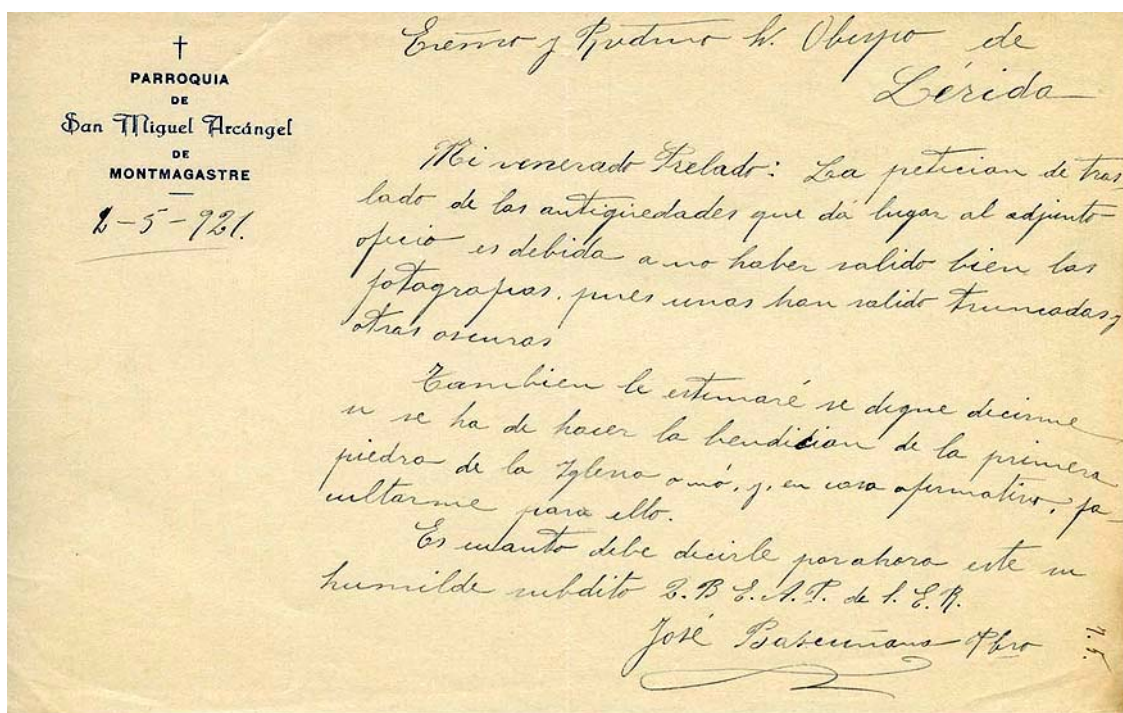 PARROQUIA
DE
San Miguel Arcángel
DE
MONTMAGASTRE
2-5-921.
Exsmo y Rvdmo Sr. Obispo de
Lérida
Mi venerado Prelado: La peticion de tras-
lado de las antigüedades que dá lugar al adjunto
oficio es debida a no haber salido bien las
fotografias, pues unas han salido truncadas y
otras oscuras
Tambien le estimaré se digne decirme
si se ha de hacer la bendician de la primera
piedra de la Iglesia o nó, y, en caso afirmativo, fa-
cultarme para ello.
Es cuanto debe decirle por ahora este su
humilde subdito Q. B. E. A. P. de S. E. R.
José Bascuñana Pbro